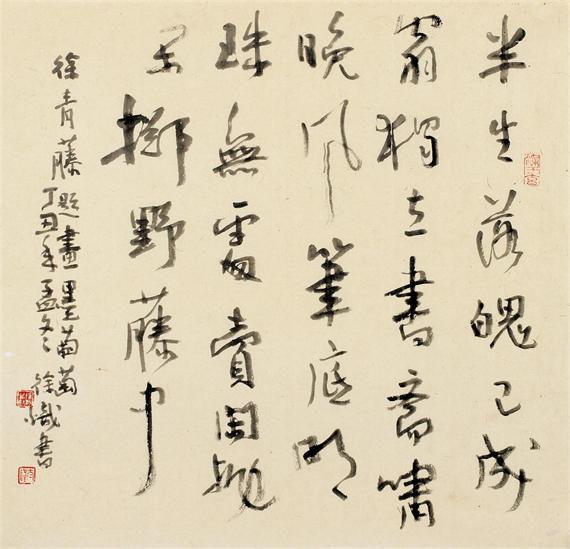 半生落魄已成
翁獨立書齋嘯
晚風筆底明
珠無處賣閑拋
閑擲野藤中
徐青藤題畫墨葡萄
丁丑年孟冬徐書